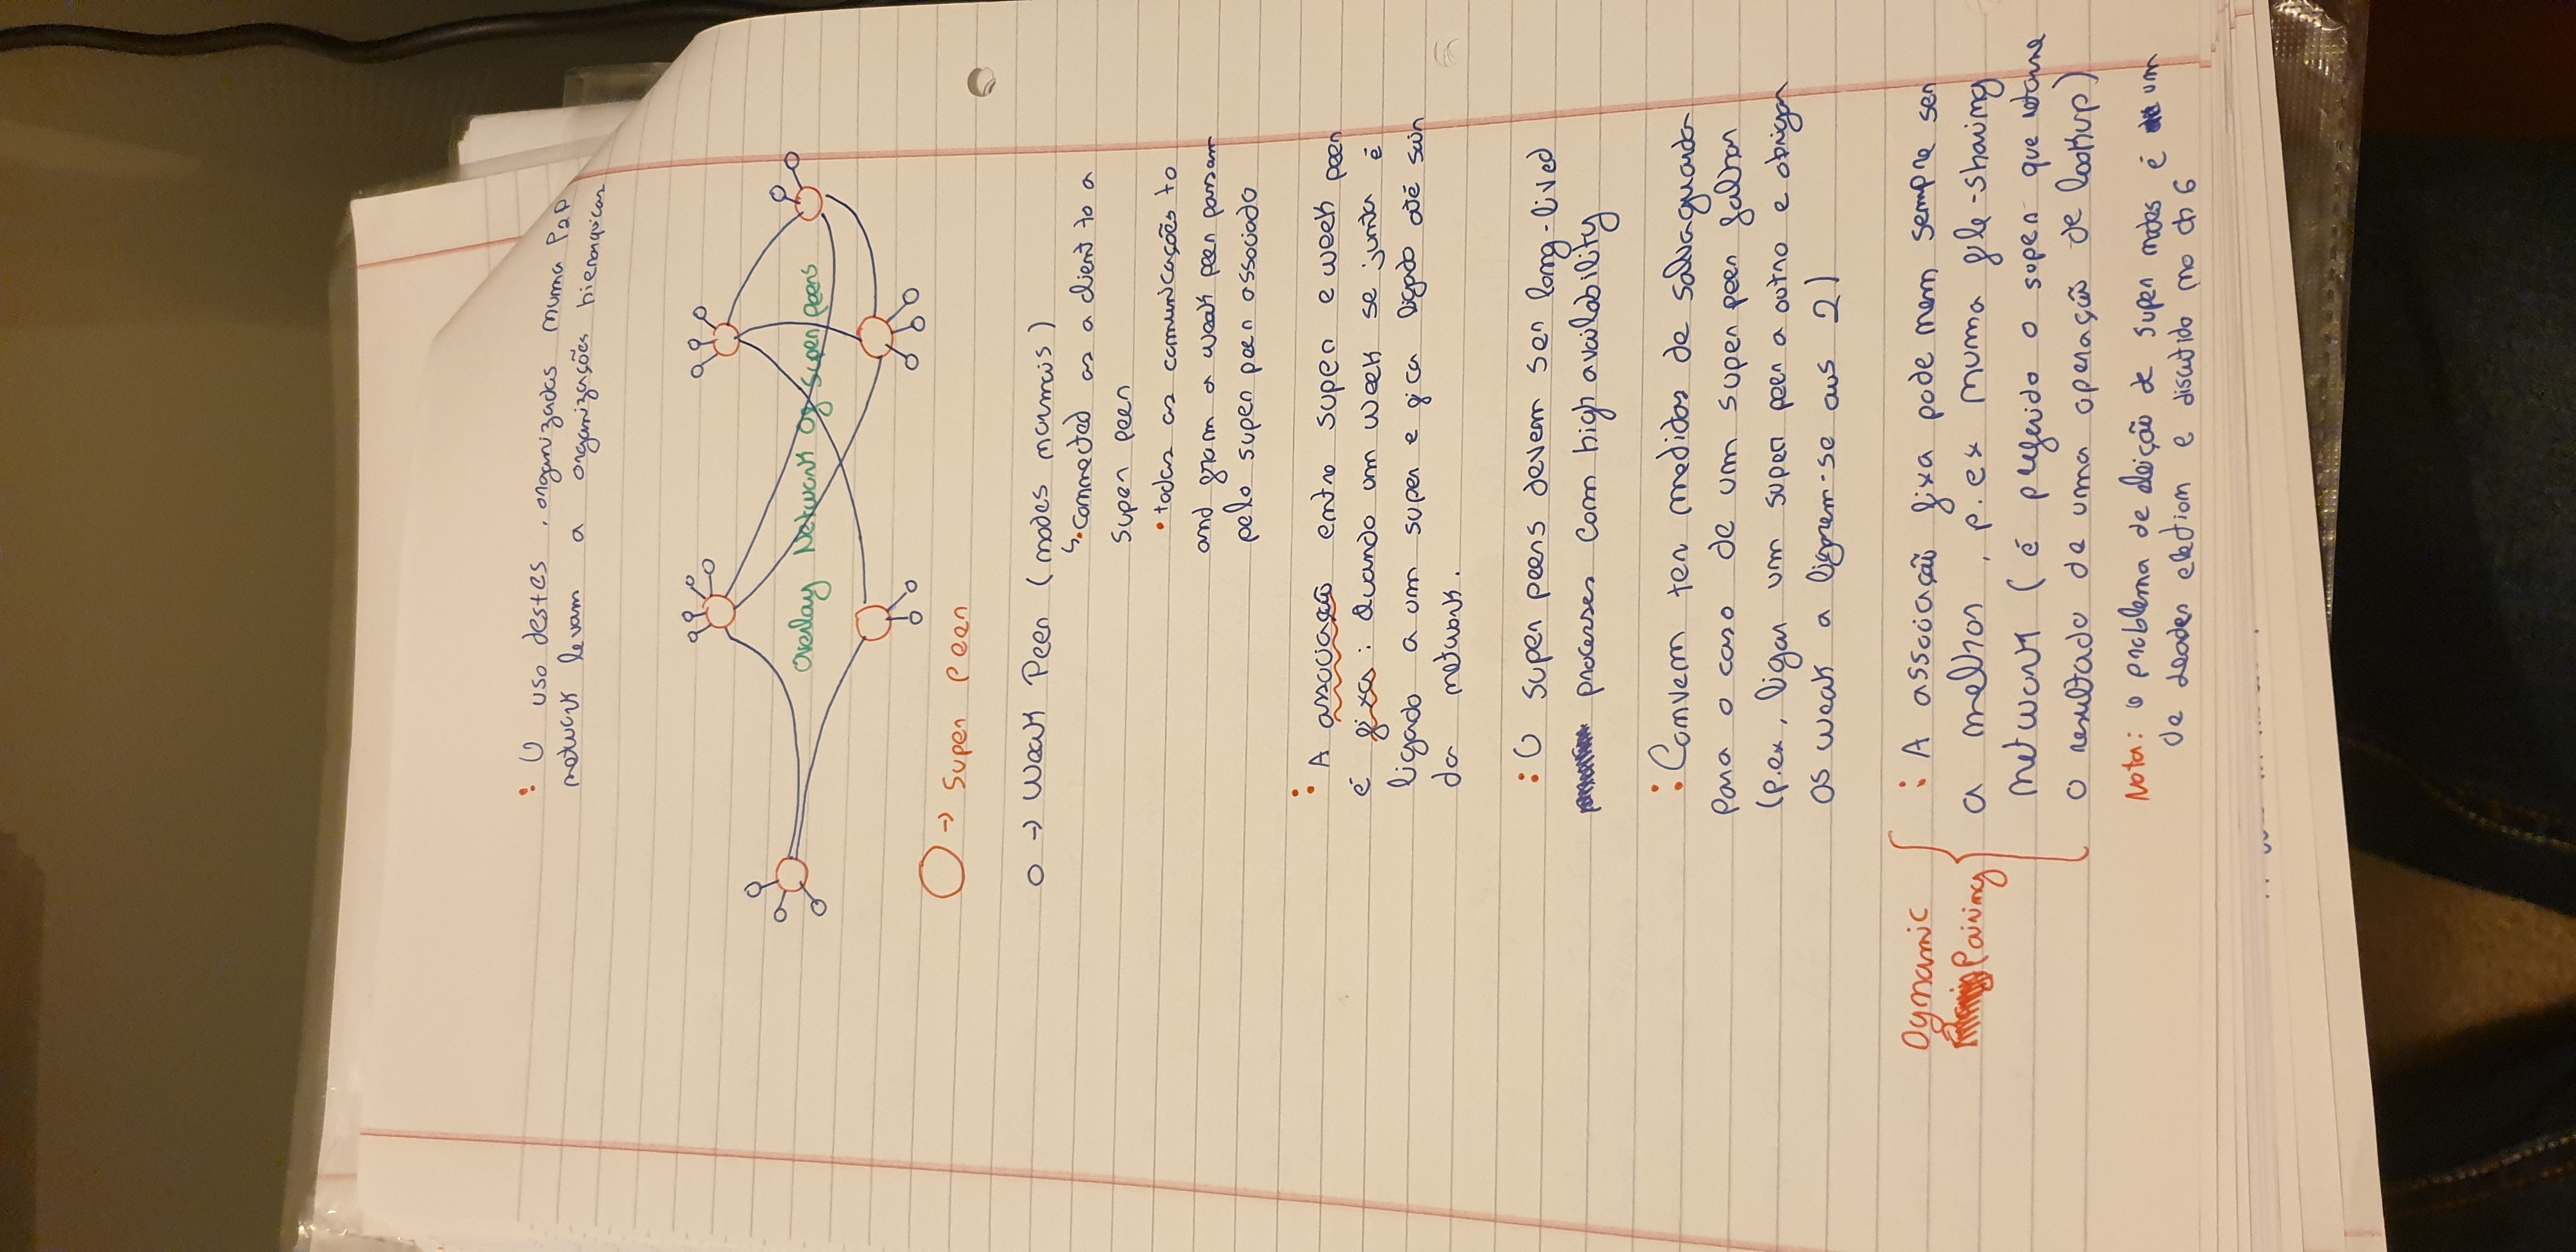 : O uso destes, organizados numa P2P
network levam a organizações hierarquicas
Overlay Network of super peers
→ Super Peer
→ Weak Peer (nodes normais)
↳• connected as a client to a
super peer
• todas as comunicações to
and from a weak peer passam
pelo super peer associado
: A associação entre super e week peer
é fixa: Quando um week se junta é
ligado a um super e fica ligado até sair
da network.
: O super peers devem ser long-lived
processes com high availability
: Convem ter medidas de salvaguarda
para o caso de um super peer falhar
(p.ex, ligar um super peer a outro e obrigar
os weak a ligarem-se aos 2)
Dynamic
Pairing
: A associação fixa pode nem sempre ser
a melhor, p.ex numa file-sharing
network (é preferido o super que retorne
o resultado de uma operação de lookup)
Nota: o problema de eleição de super nodes é um
de leader election e discutido no ch 6